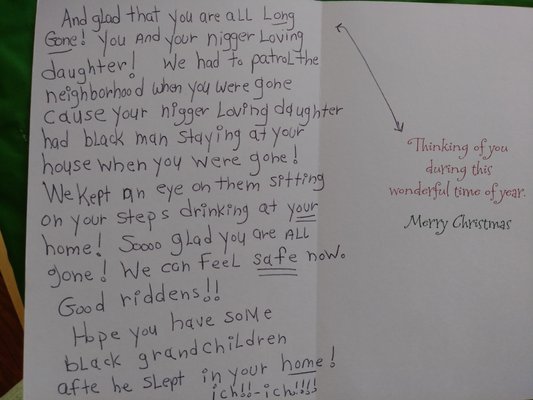 And glad that you are all Long
Gone! You And your nigger Loving
daughter! We had to patrol the
neighborhood when you were gone
cause your nigger Loving daughter
had black man staying at your
house when you were gone!
We kept an eye on them sitting
on your steps drinking at your
home! Soooo glad you are ALL
gone! We can feel safe now.
Good riddens!!
Hope you have some
black grandchildren
afte he slept in your home!
ich!!-ich!!!!
Thinking of you
during this
wonderful time of year.
Merry Christmas